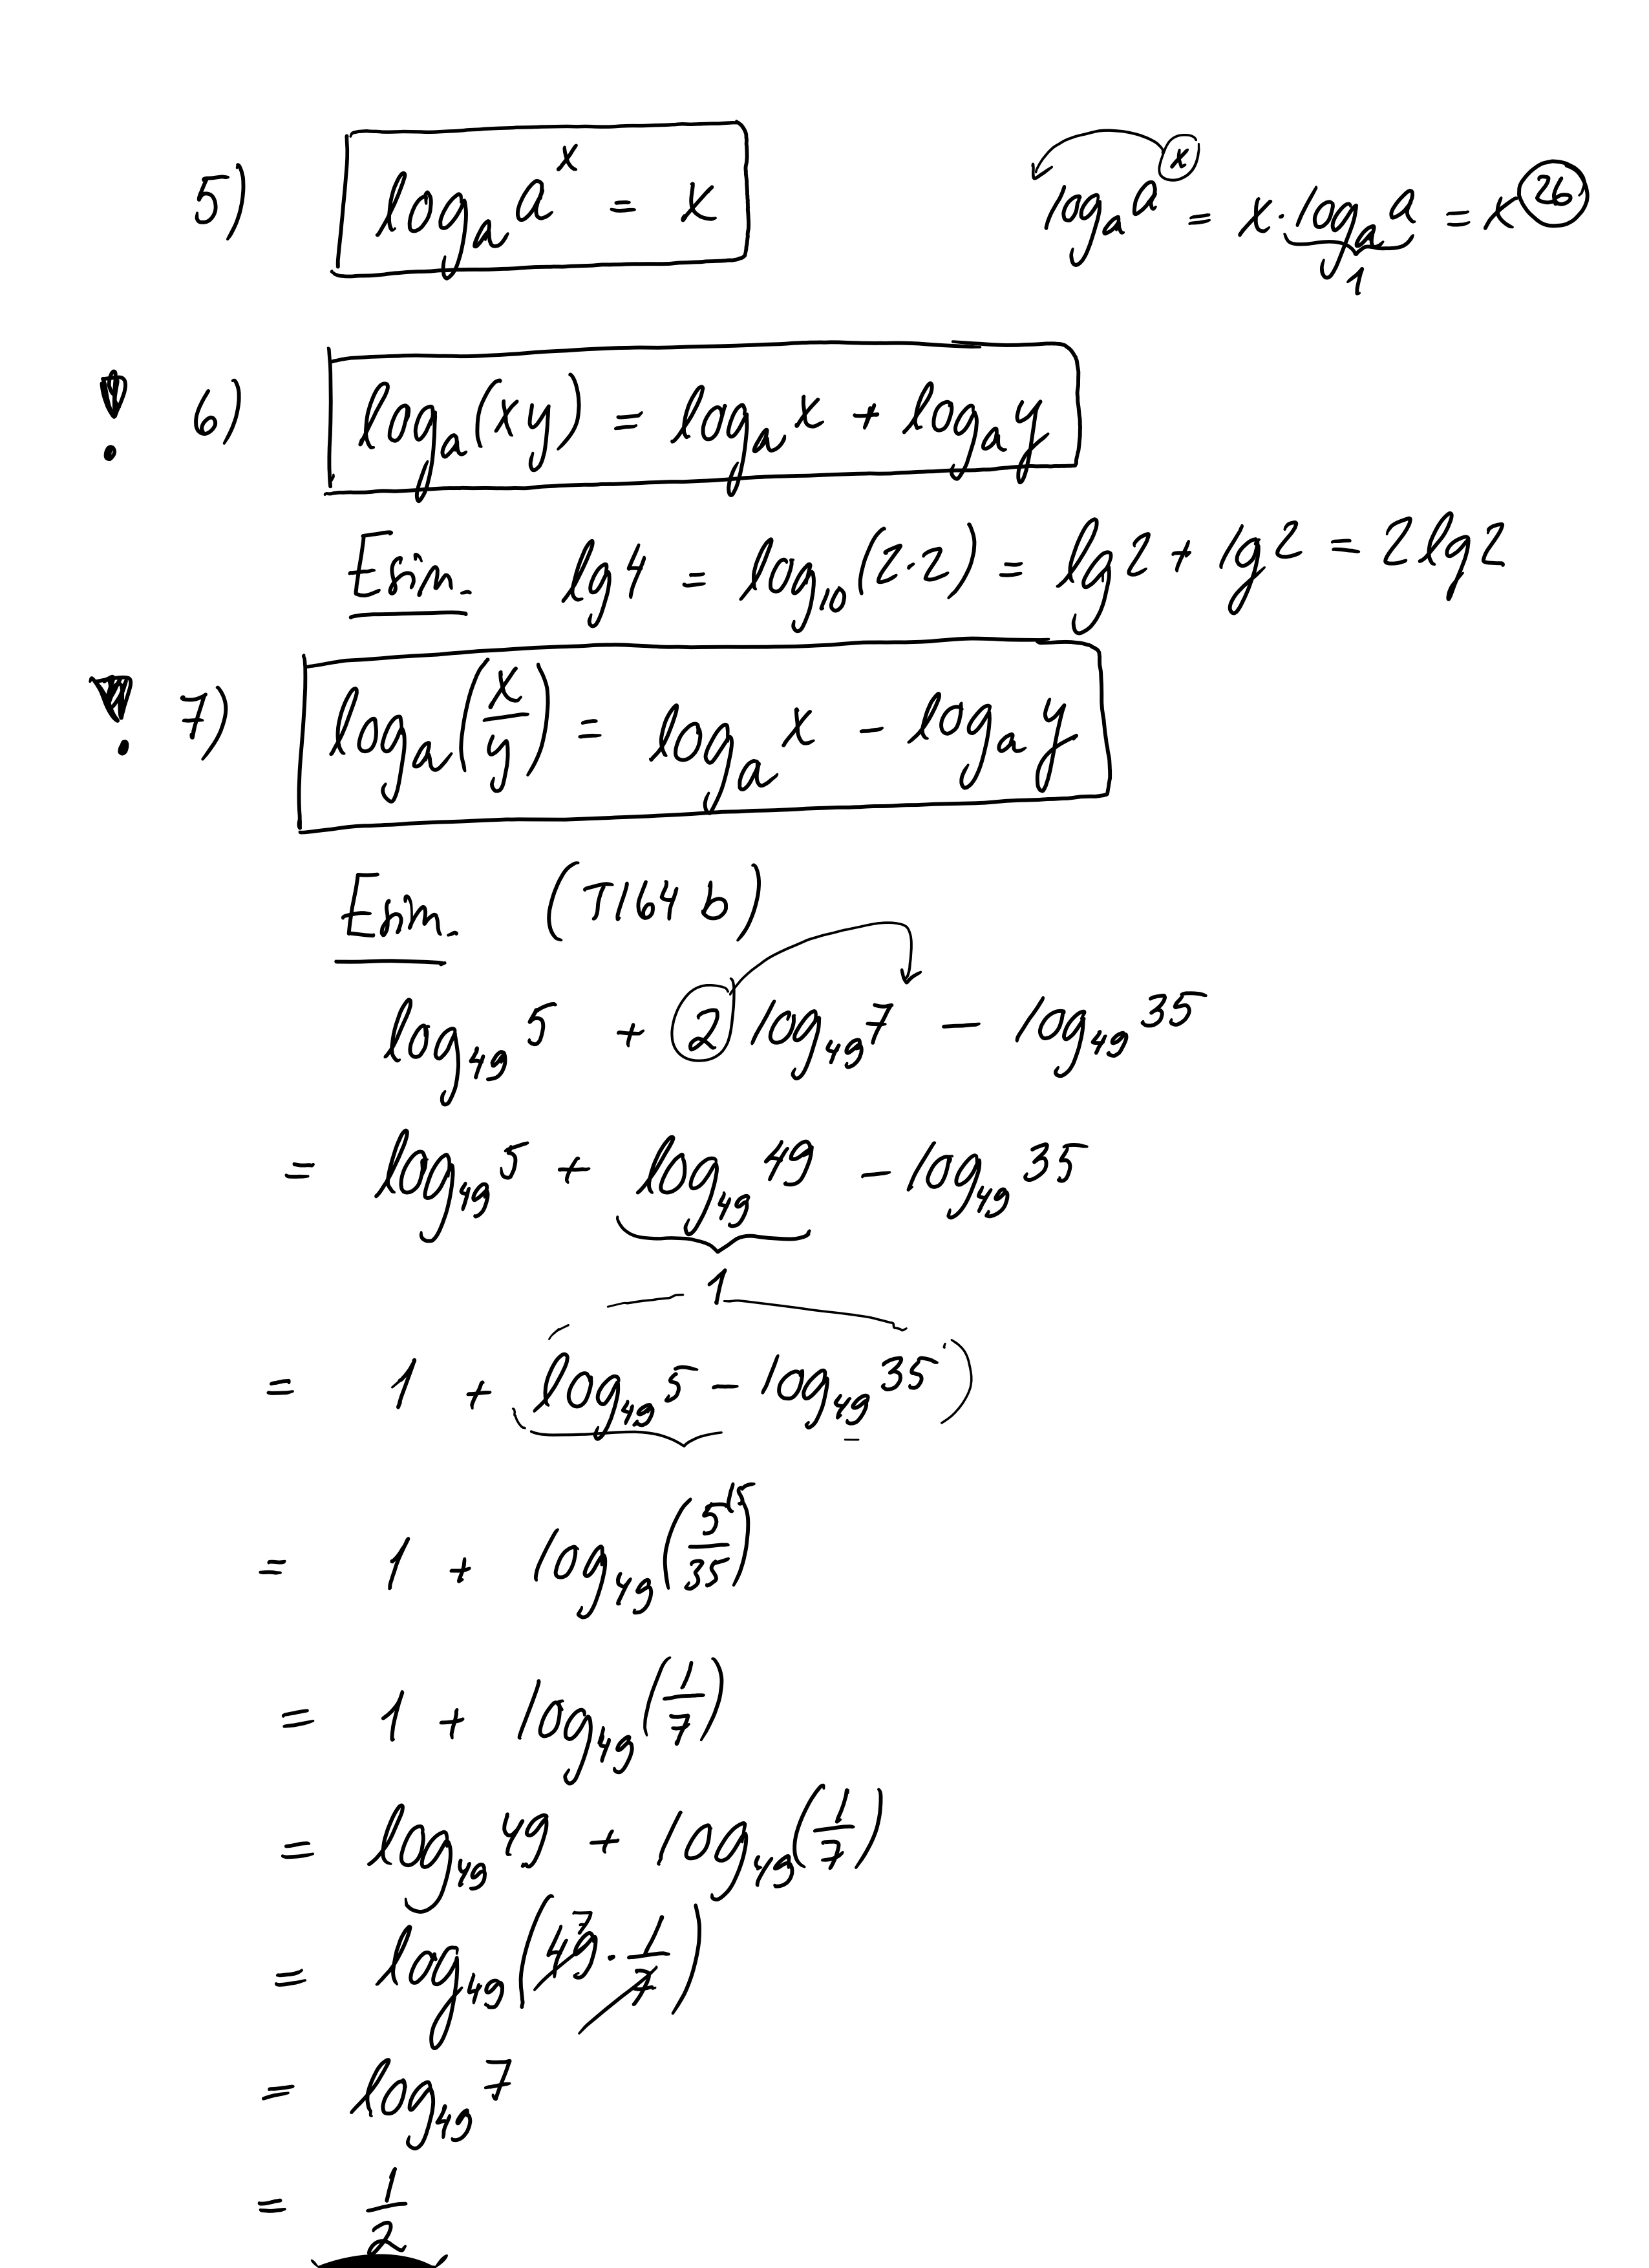 5) logₐ aˣ = x logₐ aˣ = x · logₐ a = x (26)
1
! 6) logₐ(xy) = logₐ x + logₐ y
Esim. lg 4 = log₁₀(2·2) = lg 2 + lg 2 = 2 lg 2
! 7) logₐ(x/y) = logₐ x − logₐ y
Esim. (T164 b)
log₄₉ 5 + 2 log₄₉ 7 − log₄₉ 35
= log₄₉ 5 + log₄₉ 49 − log₄₉ 35
1
= 1 + (log₄₉ 5 − log₄₉ 35)
= 1 + log₄₉(5/35)
= 1 + log₄₉(1/7)
= log₄₉ 49 + log₄₉(1/7)
= log₄₉(49 · 1/7)
= log₄₉ 7
= 1/2